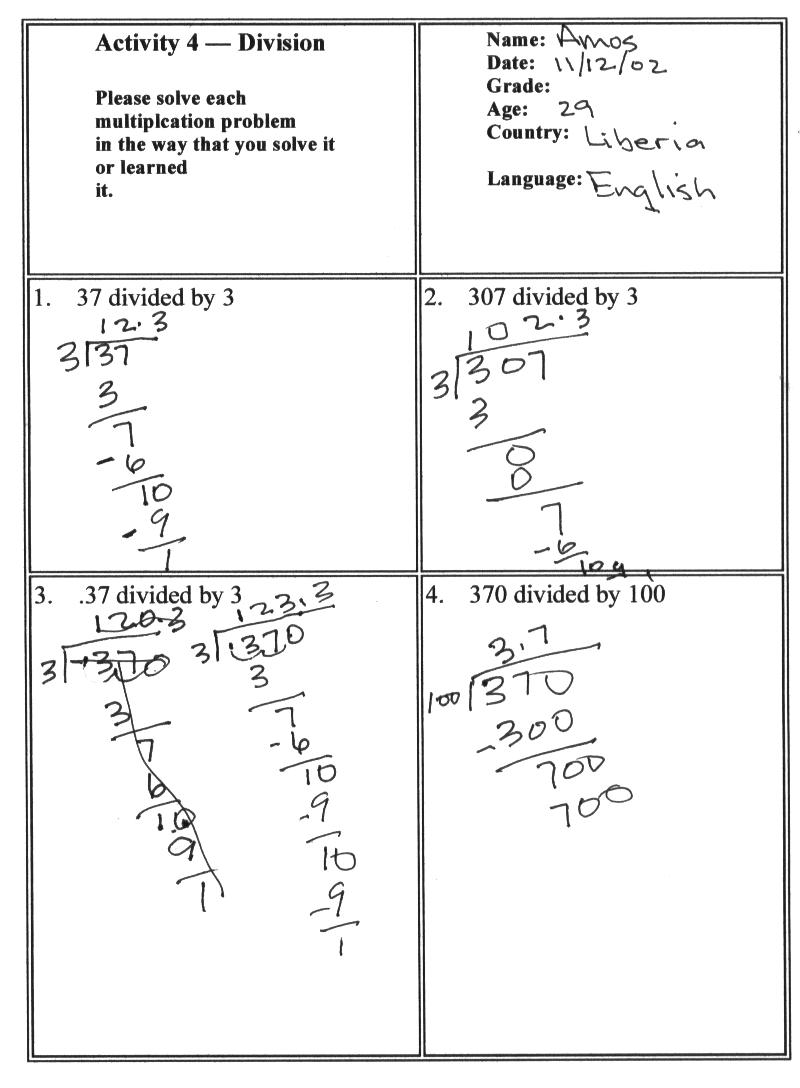 Activity 4 — Division
Please solve each
multiplcation problem
in the way that you solve it
or learned
it.
Name: Amos
Date: 11/12/02
Grade:
Age: 29
Country: Liberia
Language: English
1. 37 divided by 3
12.3
3 37
3
7
-6
10
-9
1
2. 307 divided by 3
102.3
3 307
3
0
0
7
-6
10
9
1
3. .37 divided by 3
120.3
3 .370
3
7
6
10
9
1
123.3
3 .370
3
7
-6
10
-9
10
-9
1
4. 370 divided by 100
3.7
100 370
-300
700
700